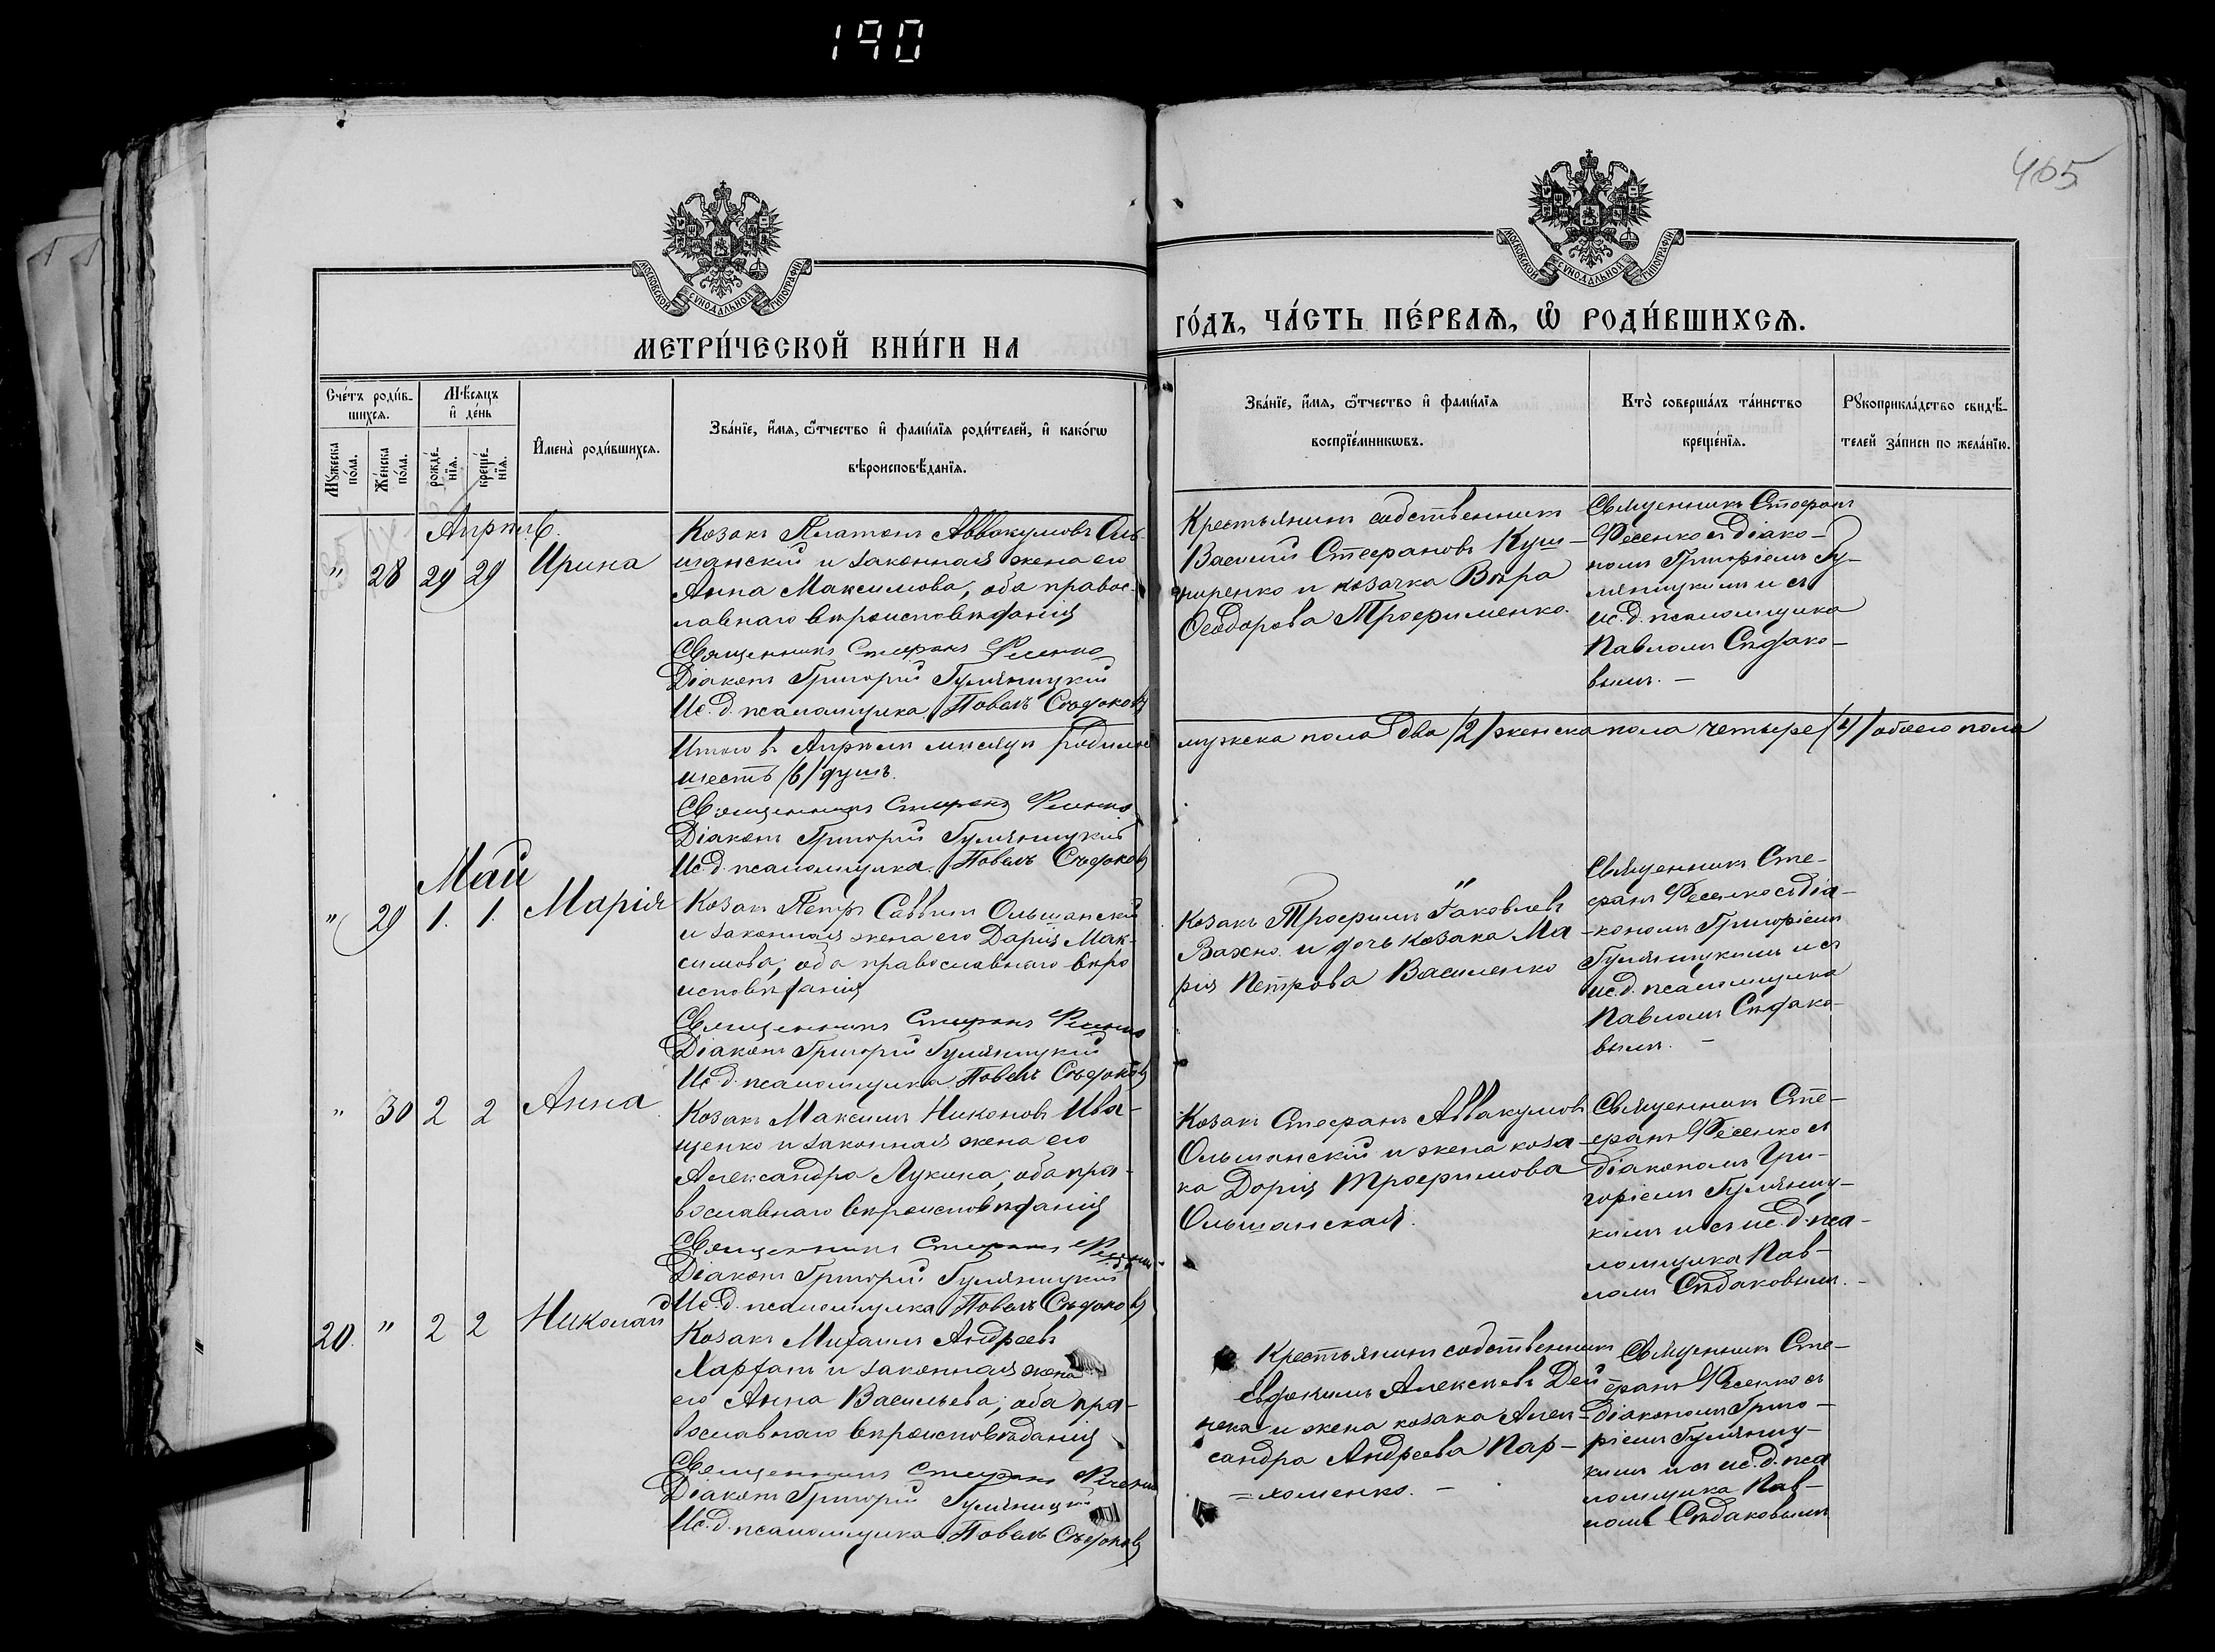 190
405
МОСКОВСКОЙ СѴНОДАЛЬНОЙ ТИПОГРАФІИ
МОСКОВСКОЙ СѴНОДАЛЬНОЙ ТИПОГРАФІИ
МЕТРИ́ЧЕСКОЙ КНИ́ГИ НА
ГО́ДЪ, ЧА́СТЬ ПЕ́РВАѦ, Ѡ҆ РОДИ́ВШИХСѦ.
Сче́тъ роди́в-
шихсѧ.
Мꙋ́жеска
по́ла.
Же́нска
по́ла.
Мѣ́сѧцъ
и҆ де́нь
рожде́-
нїѧ.
креще́-
нїѧ.
И҆мена̀ роди́вшихсѧ.
Зва́нїе, и҆́мѧ, ѻ҆́тчество и҆ фами́лїѧ роди́телей, и҆ како́гѡ
вѣроисповѣ́данїѧ.
Зва́нїе, и҆́мѧ, ѻ҆́тчество и҆ фами́лїѧ
воспрїе́мникѡвъ.
Кто̀ соверша́лъ та́инство
креще́нїѧ.
Рꙋкоприкла́дство свидѣ́-
телей за́писи по жела́нїю.
Апрѣль.
" 28 29 29 Ирина
Козакъ Платонъ Аввакумовъ Оль-
шанскій и законная жена его
Анна Максимова, оба правос-
лавнаго вѣроисповѣданія
Священникъ Стефанъ Фесенко
Діаконъ Григорій Гуляницкій
Ис. д. псаломщика Павелъ Сѣдаковъ
Крестьянинъ собственникъ
Василій Стефановъ Куш-
ниренко и козачка Вѣра
Ѳеодорова Трофименко.
Священникъ Стефанъ
Фесенко съ діако-
номъ Григоріемъ Гу-
ляницкимъ и съ
ис. д. псаломщика
Павломъ Сѣдако-
вымъ. —
Итого въ Апрѣлѣ мѣсяцѣ родилось
мужска пола два /2/ женска пола четыре /4/ обоего пола
шесть /6/ душъ.
Священникъ Стефанъ Фесенко
Діаконъ Григорій Гуляницкій
Ис. д. псаломщика Павелъ Сѣдаковъ
Май
" 29 1. 1. Марія
Козакъ Петръ Саввинъ Ольшанскій
и законная жена его Дарія Мак-
симова, оба православнаго вѣро
исповѣданія
Священникъ Стефанъ Фесенко
Діаконъ Григорій Гуляницкій
Ис. д. псаломщика Павелъ Сѣдаковъ
Козакъ Трофимъ Іаковлевъ
Вахно и дочь козака Ма-
рія Петрова Василенко
Священникъ Сте-
фанъ Фесенко съ діа-
кономъ Григоріемъ
Гуляницкимъ и съ
ис. д. псаломщика
Павломъ Сѣдако-
вымъ. —
" 30 2 2 Анна
Козакъ Максимъ Никоновъ Ива-
щенко и законная жена его
Александра Лукина, оба пра-
вославнаго вѣроисповѣданія
Священникъ Стефанъ Фесенко
Діаконъ Григорій Гуляницкій
Ис. д. псаломщика Павелъ Сѣдаковъ
Козакъ Стефанъ Аввакумовъ
Ольшанскій и жена коза-
ка Дарія Трофимова
Ольшанская.
Священникъ Сте-
фанъ Фесенко съ
діакономъ Гри-
горіемъ Гуляниц-
кимъ и съ ис. д. пса-
ломщика Пав-
ломъ Сѣдаковымъ. —
20. " 2 2 Николай
Козакъ Михаилъ Андреевъ
и законная жена
его Анна Васильева, оба пра-
вославнаго вѣроисповѣданія
Священникъ Стефанъ Фесенко
Діаконъ Григорій Гуляницкій
Ис. д. псаломщика Павелъ Сѣдаковъ
Крестьянинъ собственникъ
Евдокимъ Алексѣевъ Дей
нека и жена козака Алек-
сандра Андреева Пар-
=хоменко. —
Священникъ Сте-
фанъ Фесенко съ
діакономъ Григо-
ріемъ Гуляниц-
кимъ и съ ис. д. пса
ломщика Пав-
ломъ Сѣдаковымъ